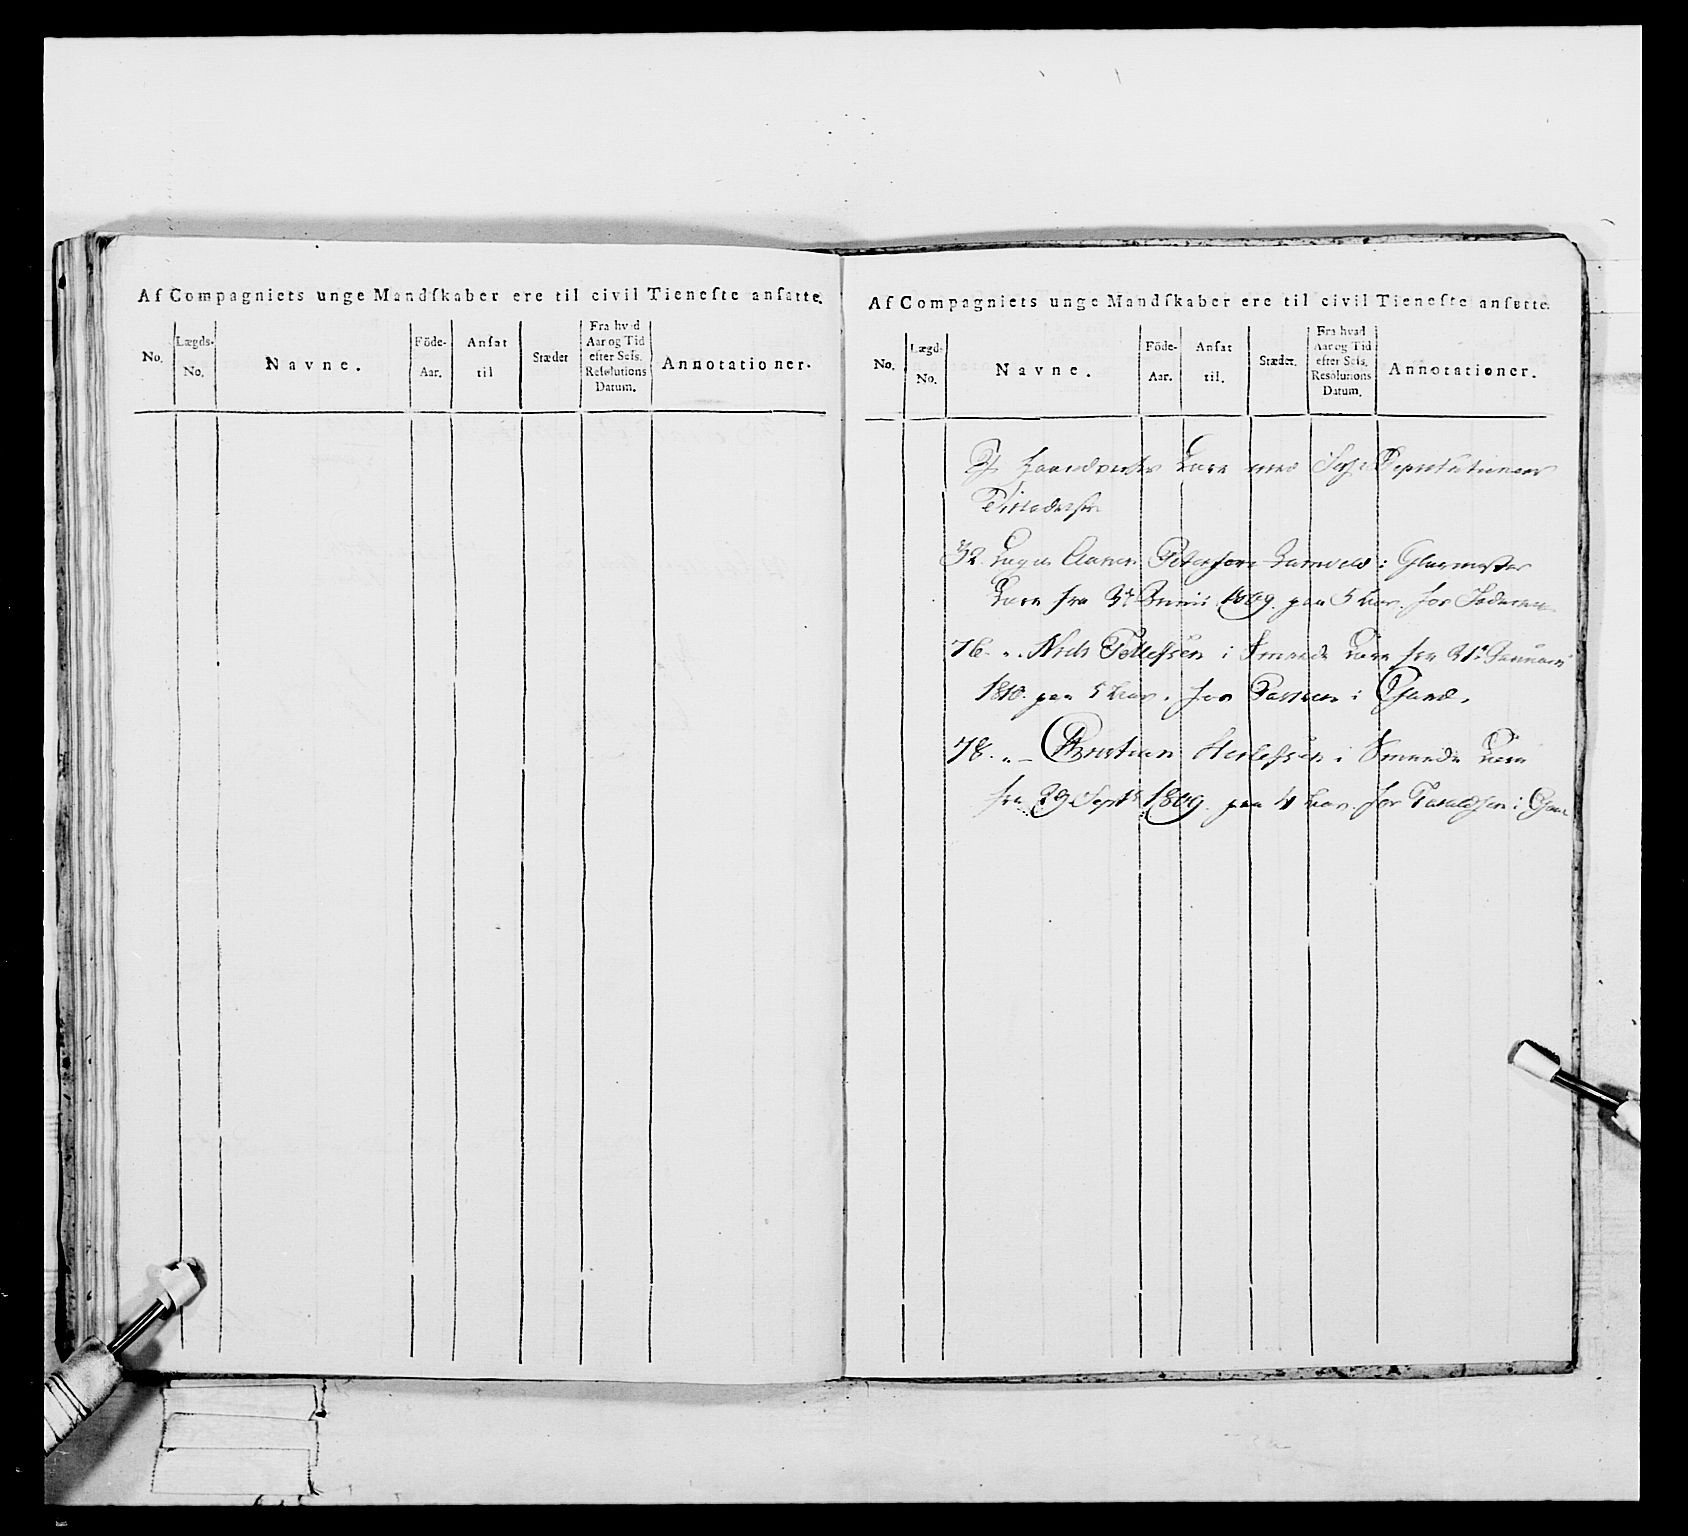 Af Compagniets unge Mandſkaber ere til civil Tieneſte anſatte.
No.
Lægds-
No.
Navne.
Föde-
Aar.
Anſat
til
Stædet
Fra hvad
Aar og Tid
efter Seſs.
Reſolutions
Datum.
Annotationer.
Af Compagniets unge Mandſkaber ere til civil Tieneſte anſatte.
No.
Lægd-
No.
Navne.
Föde-
Aar.
Anſat
til.
Stædet.
Fra hvad
Aar og Tid
efter Seſs.
Resolutions
Datum.
Annotationer.
I Haandværks Lære med Sess: Deputationens
Tilladelse
32. Aanen Petersen i Glasmester
Lære fra Junii 1809. paa 5 Aar. for
76. " Niels Tellefsen i Smede Lære fra 31te Januarii
1810. paa 5 Aar. for i
78. " Christian i Smede Lære
fra 29 Septr 1809. paa 4 Aar. for i